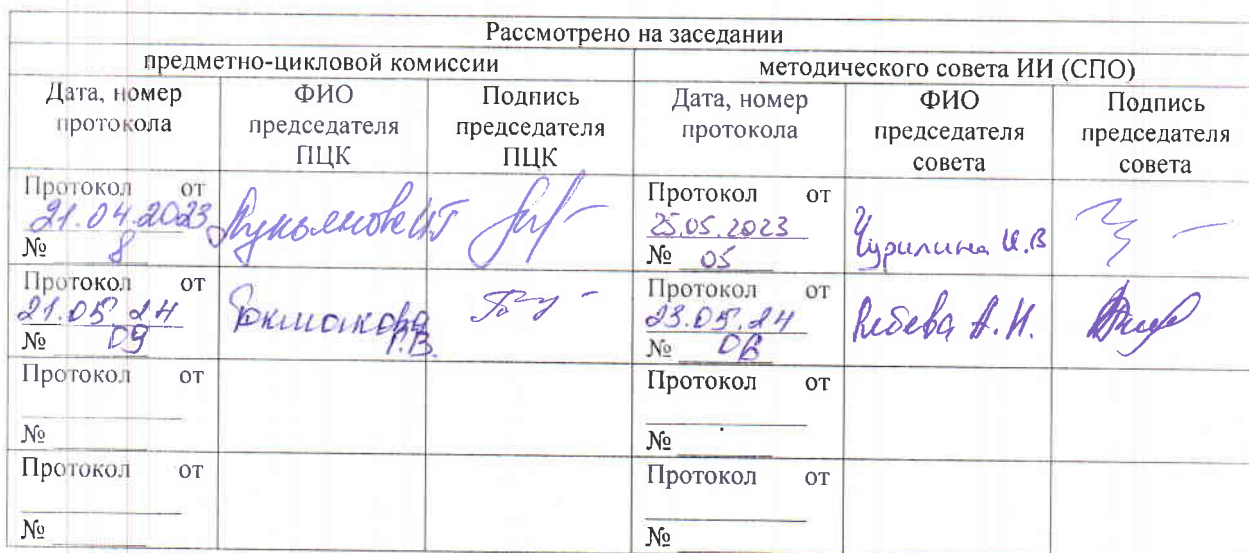 Рассмотрено на заседании
предметно-цикловой комиссии
методического совета ИИ (СПО)
Дата, номер протокола
ФИО председателя ПЦК
Подпись председателя ПЦК
Дата, номер протокола
ФИО председателя совета
Подпись председателя совета
Протокол от
21.04.2023
№ 8
Протокол от
25.05.2023
№ 05
Чурилина И.В
Протокол от
21.05.24
№ 09
Протокол от
23.05.24
№
Протокол от
№
Протокол от
№
Протокол от
№
Протокол от
№